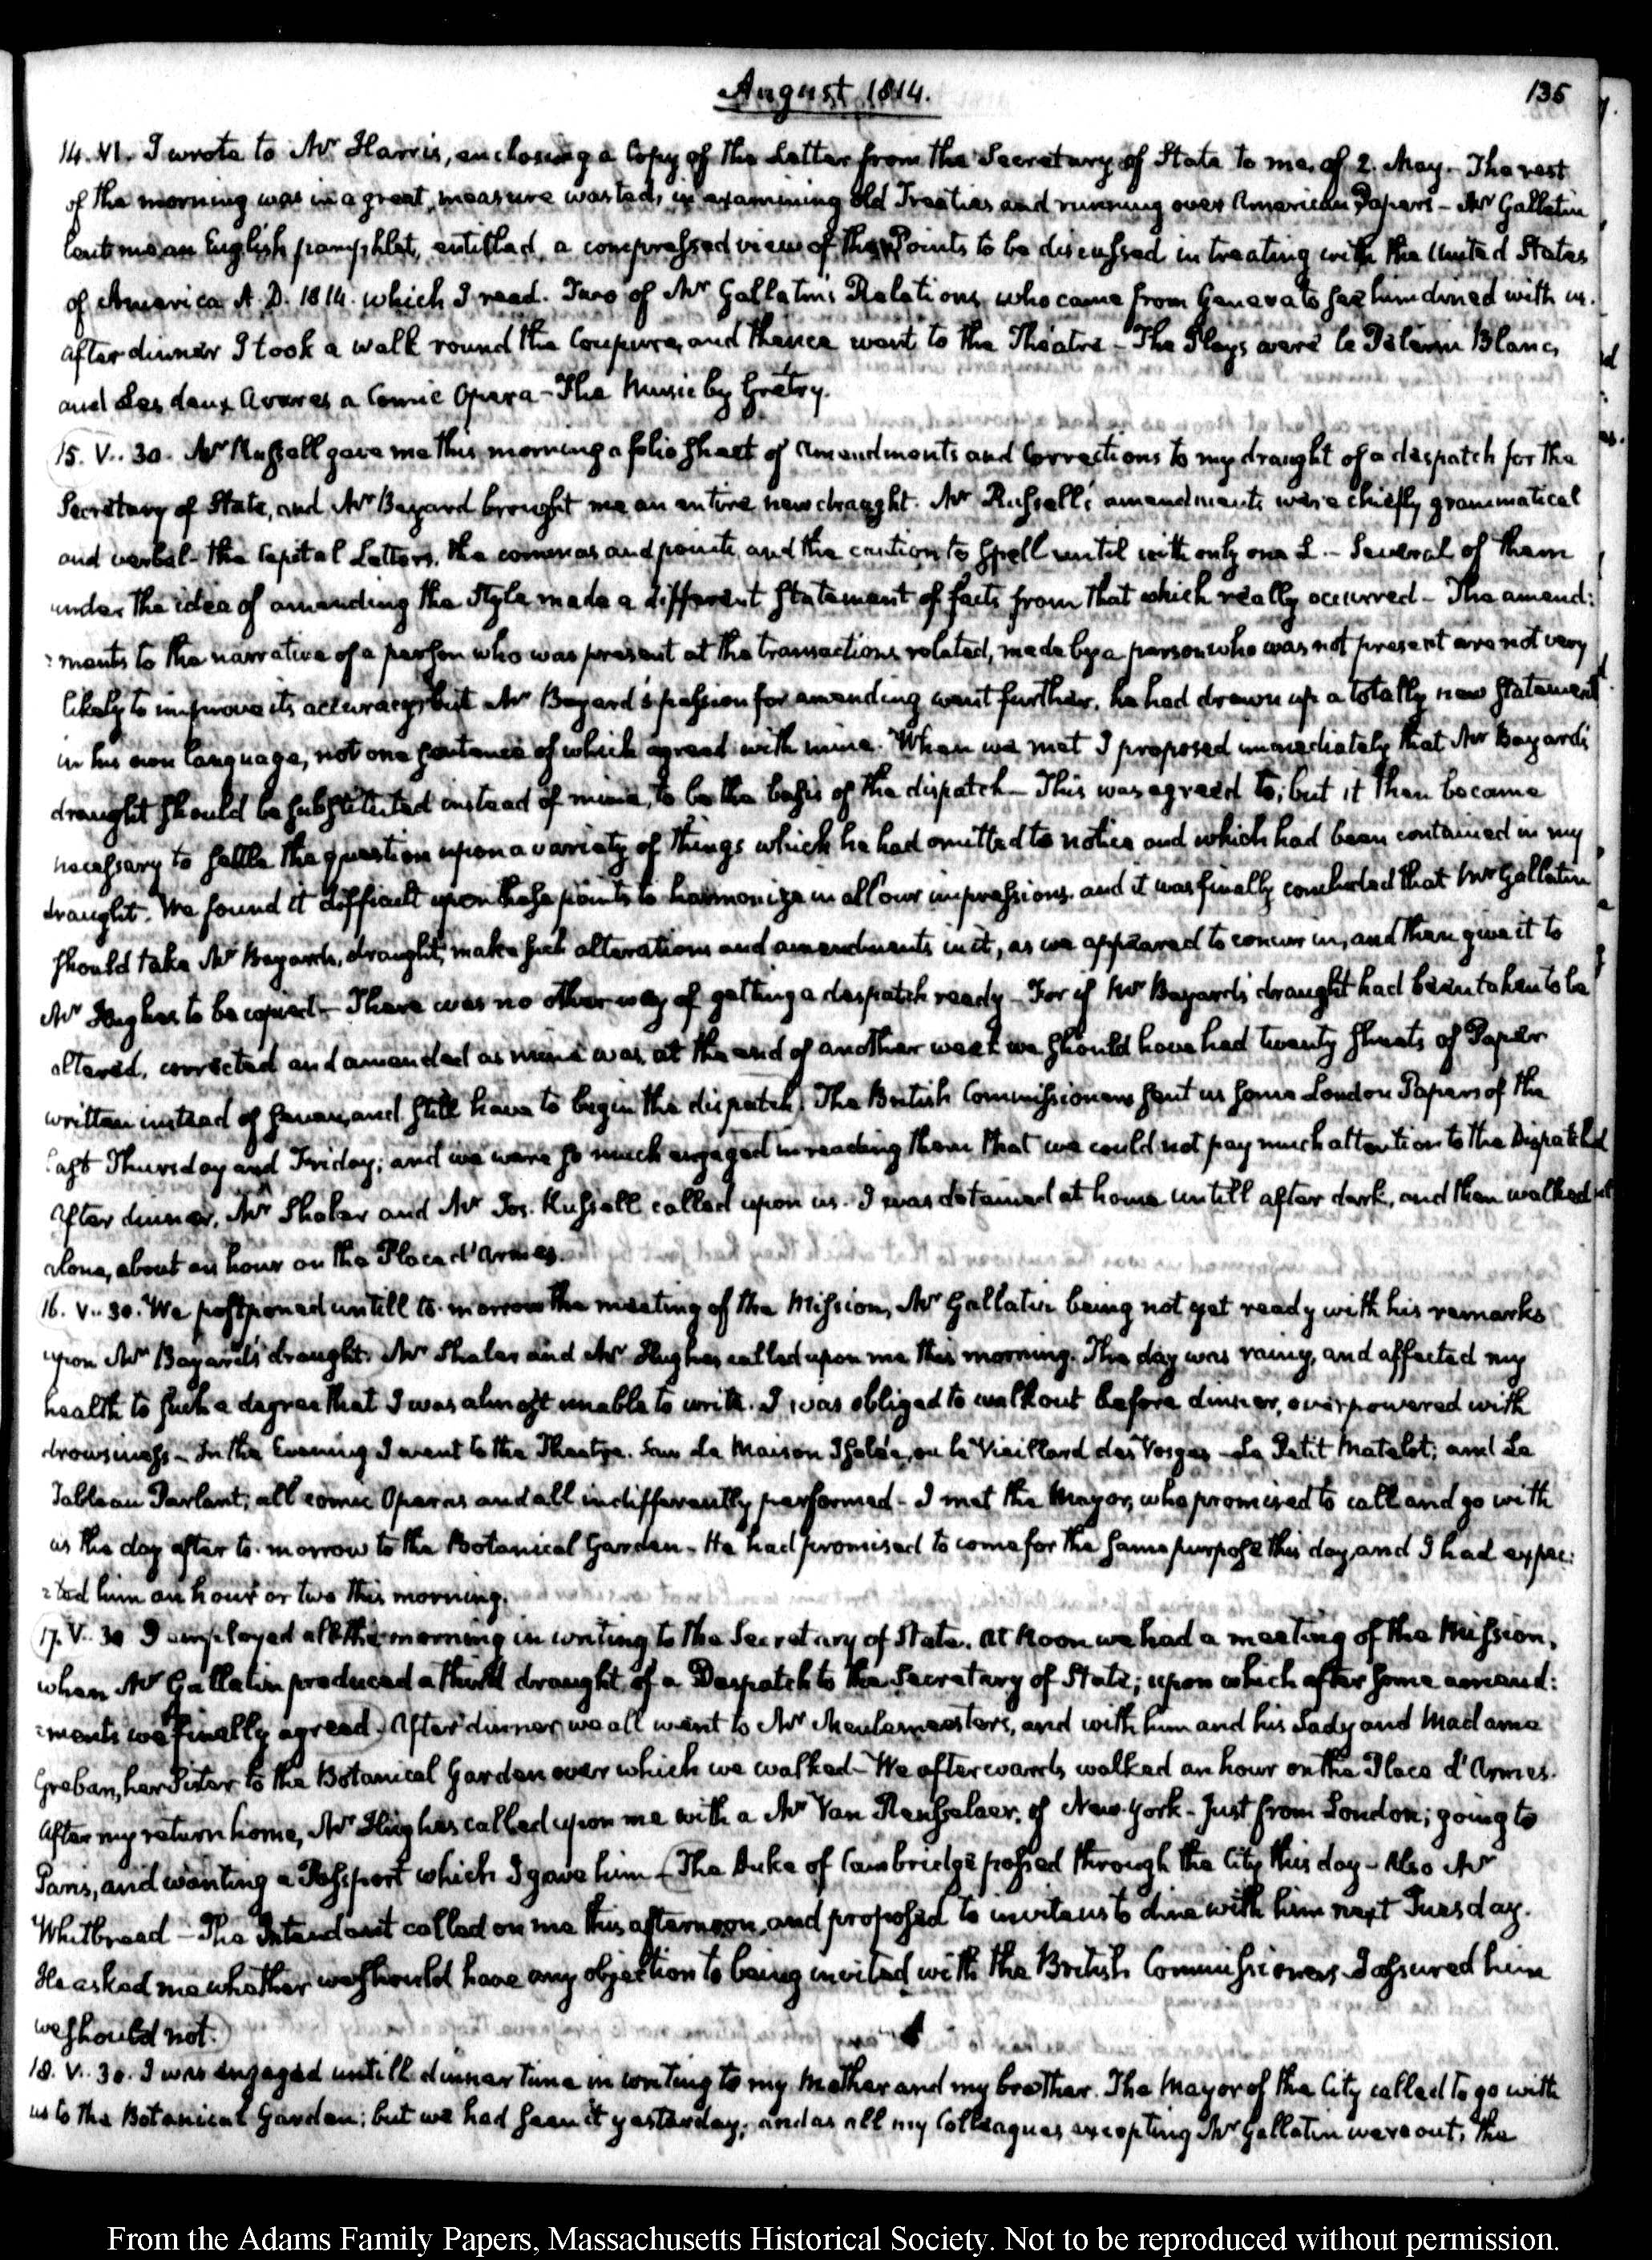 August 1814.
135
14. VI. I wrote to Mr Harris, enclosing a Copy of the Letter from the Secretary of State to me, of 2. May. The rest
of the morning was in a great measure wasted, in examining old Treaties and running over American Papers - Mr Gallatin
lent me an English pamphlet, entitled, a compressed view of the Points to be discussed in treating with the United States
of America A.D. 1814. which I read. Two of Mr Gallatin's Relations who came from Geneva to see him dined with us.
after dinner I took a walk round the Coupure, and thence went to the Theatre - The Plays were le Pelerin Blanc,
and Les deux Avares a Comic Opera - The Music by Gretry.
15. V.. 30. Mr Russell gave me this morning a folio sheet of Amendments and Corrections to my draught of a despatch for the
Secretary of State, and Mr Bayard brought me an entire new draught. Mr Russell's amendments were chiefly grammatical
and verbal - the Capital Letters, the commas and points, and the caution to spell until with only one L. - Several of them
under the idea of amending the style made a different statement of facts from that which really occurred - The amend:
:ments to the narrative of a person who was present at the transactions related, made by a person who was not present are not very
likely to improve its accuracy; but Mr Bayard's passion for amending went further, he had drawn up a totally new statement
in his own language, not one sentence of which agreed with mine. When we met I proposed immediately that Mr Bayard's
draught should be substituted instead of mine, to be the basis of the dispatch - This was agreed to; but it then became
necessary to settle the question upon a variety of things which he had omitted to notice and which had been contained in my
draught. We found it difficult upon these points to harmonize in all our impressions, and it was finally concluded that Mr Gallatin
should take Mr Bayard's draught, make such alterations and amendments in it, as we appeared to concur in, and then give it to
Mr Hughes to be copied - There was no other way of getting a despatch ready - For if Mr Bayard's draught had been taken to be
altered, corrected and amended as mine was, at the end of another week we should have had twenty sheets of Paper
written instead of seven, and still have to begin the dispatch. The British Commissioners sent us some London Papers of the
last Thursday and Friday; and we were so much engaged in reading them that we could not pay much attention to the Dispatch
After dinner, Mr Shaler and Mr Jos. Russell called upon us. I was detained at home untill after dark, and then walked
alone, about an hour on the Place d'Armes.
16. V.. 30. We postponed untill to-morrow the meeting of the Mission, Mr Gallatin being not yet ready with his remarks
upon Mr Bayard's draught. Mr Shaler and Mr Hughes called upon me this morning. The day was rainy, and affected my
health to such a degree that I was almost unable to write. I was obliged to walk out before dinner, overpowered with
drowsiness - In the Evening I went to the Theatre. Saw La Maison Isolée, ou le Vieillard des Vosges - Le Petit Matelot; and Le
Tableau Parlant; all comic Operas and all indifferently performed - I met the Mayor, who promised to call and go with
us the day after to-morrow to the Botanical Garden - He had promised to come for the same purpose this day, and I had expec:
:ted him an hour or two this morning.
17. V.. 30 I employed all the morning in writing to the Secretary of State. At Noon we had a meeting of the Mission,
when Mr Gallatin produced a third draught of a Despatch to the Secretary of State; upon which after some amend:
:ments we finally agreed. After dinner we all went to Mr Meulemeester's, and with him and his Lady and Madame
Greban, her Sister to the Botanical Garden over which we walked - We afterwards walked an hour on the Place d'Armes.
After my return home, Mr Hughes called upon me with a Mr Van Rensselaer, of New-York - Just from London; going to
Paris, and wanting a Passport which I gave him - The Duke of Cambridge passed through the City this day - Also Mr
Whitbread - The Intendant called on me this afternoon, and proposed to invite us to dine with him next Tuesday.
He asked me whether we should have any objection to being invited with the British Commissioners - I assured him
we should not.
18. V.. 30. I was engaged untill dinner time in writing to my Mother and my brother. The Mayor of the City called to go with
us to the Botanical Garden; but we had seen it yesterday; and as all my Colleagues excepting Mr Gallatin were out, the
From the Adams Family Papers, Massachusetts Historical Society. Not to be reproduced without permission.